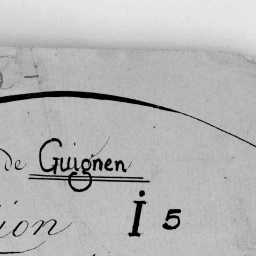 de Guignen
ion
I 5